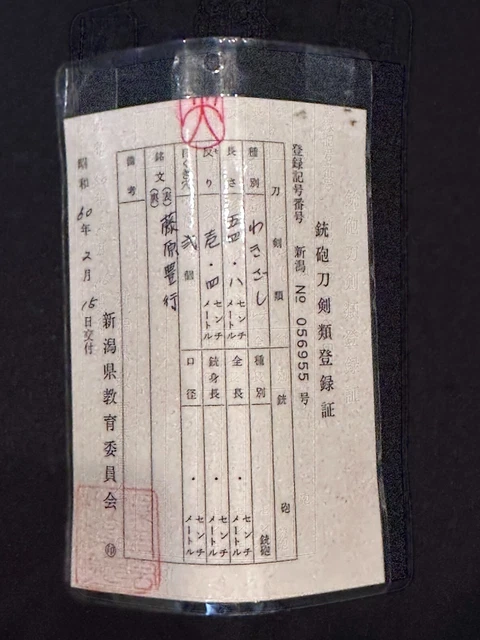 銃砲刀剣類登録証
登録記号番号 新潟 No 056955 号
刀剣類
種別 わきざし
長さ 五四・八 センチメートル
反り 壱・四 センチメートル
目くぎ穴 弐個
銘文 (表) 藤原豊行
(裏)
備考
銃砲
種別 銃砲
全長 ・ センチメートル
銃身長 ・ センチメートル
口径 ・ センチメートル
昭和60年2月15日交付
新潟県教育委員会 印